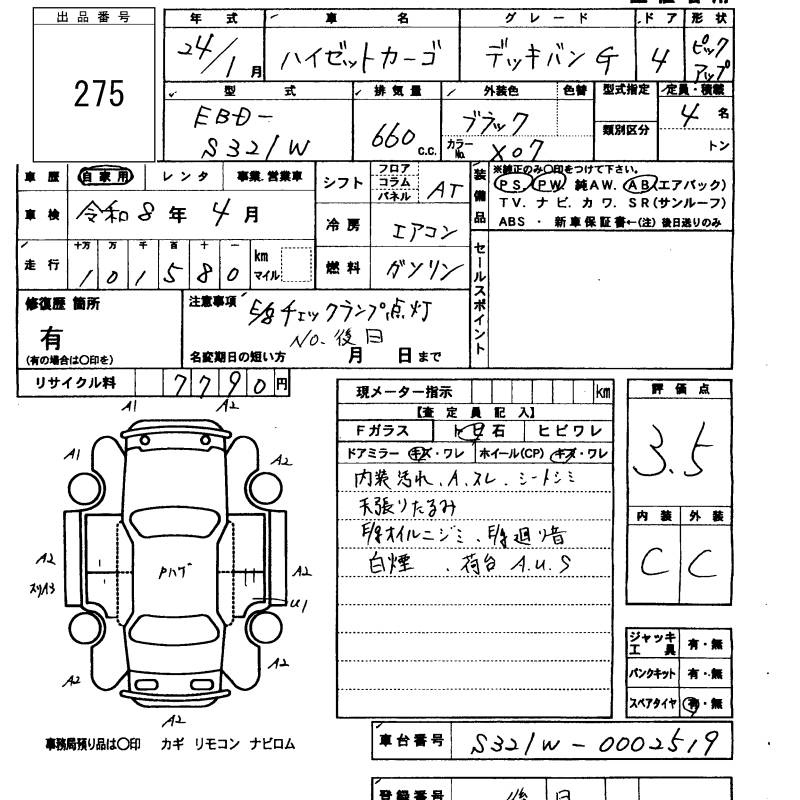 出品番号
275
年式
24/1月
車名
ハイゼットカーゴ
グレード
デッキバン G
ドア
4
形状
ピックアップ
型式
EBD-
S321W
排気量
660 c.c.
外装色
ブラック
色替
カラーNo.
X07
型式指定
類別区分
定員・積載
4名
トン
車歴
自家用
レンタ
事業.営業車
車検
令和8年4月
走行
十万 万 千 百 十 一
1 0 1 5 8 0
km
マイル
シフト
フロア
コラム
パネル
AT
冷房
エアコン
燃料
ガソリン
装備品
※純正のみ〇印をつけて下さい。
PS. PW. 純AW. AB(エアバック)
TV. ナビ. カワ. SR(サンルーフ)
ABS ・ 新車保証書←(注) 後日送りのみ
セールスポイント
修復歴 箇所
有
(有の場合は〇印を)
注意事項
E/g チェックランプ点灯
No. 後日
名変期日の短い方 月 日まで
リサイクル料
7790円
現メーター指示
km
【査定員記入】
Fガラス
トビ石
ヒビワレ
ドアミラー キズ・ワレ
ホイール(CP) キズ・ワレ
内装汚れ、A.スレ、シートシミ
天張りたるみ
E/gオイルニジミ、E/g廻り音
白煙、荷台A.U.S
評価点
3.5
内装
外装
C
C
ジャッキ工具 有・無
パンクキット 有・無
スペアタイヤ 有・無
A1
A2
A1
A2
A2
スリA3
Pハゲ
A2
U1
A2
A2
A2
事務局預り品は〇印 カギ リモコン ナビロム
車台番号
S321W-0002519
登録番号
後日